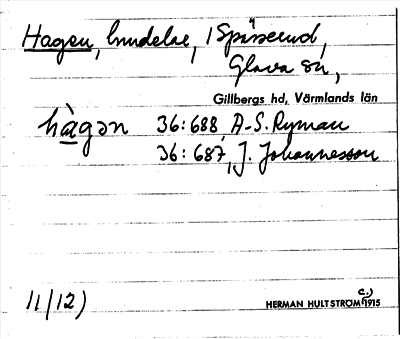 Hagen, lundelar, i Spässerud,
Glava sn,
Gillbergs hd, Värmlands län
hàgən 36: 688, A.-S. Ryman
36: 687, J. Johannesson
11/12)
c.)
HERMAN HULTSTRÖM 1915